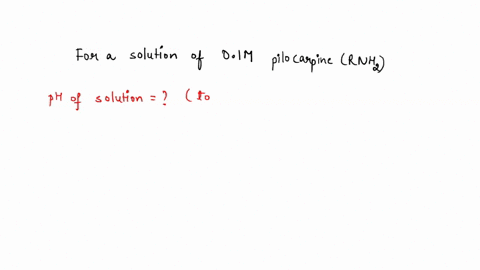 For a solution of 0.1M pilocarpine (RNH2)
pH of solution = ? (to